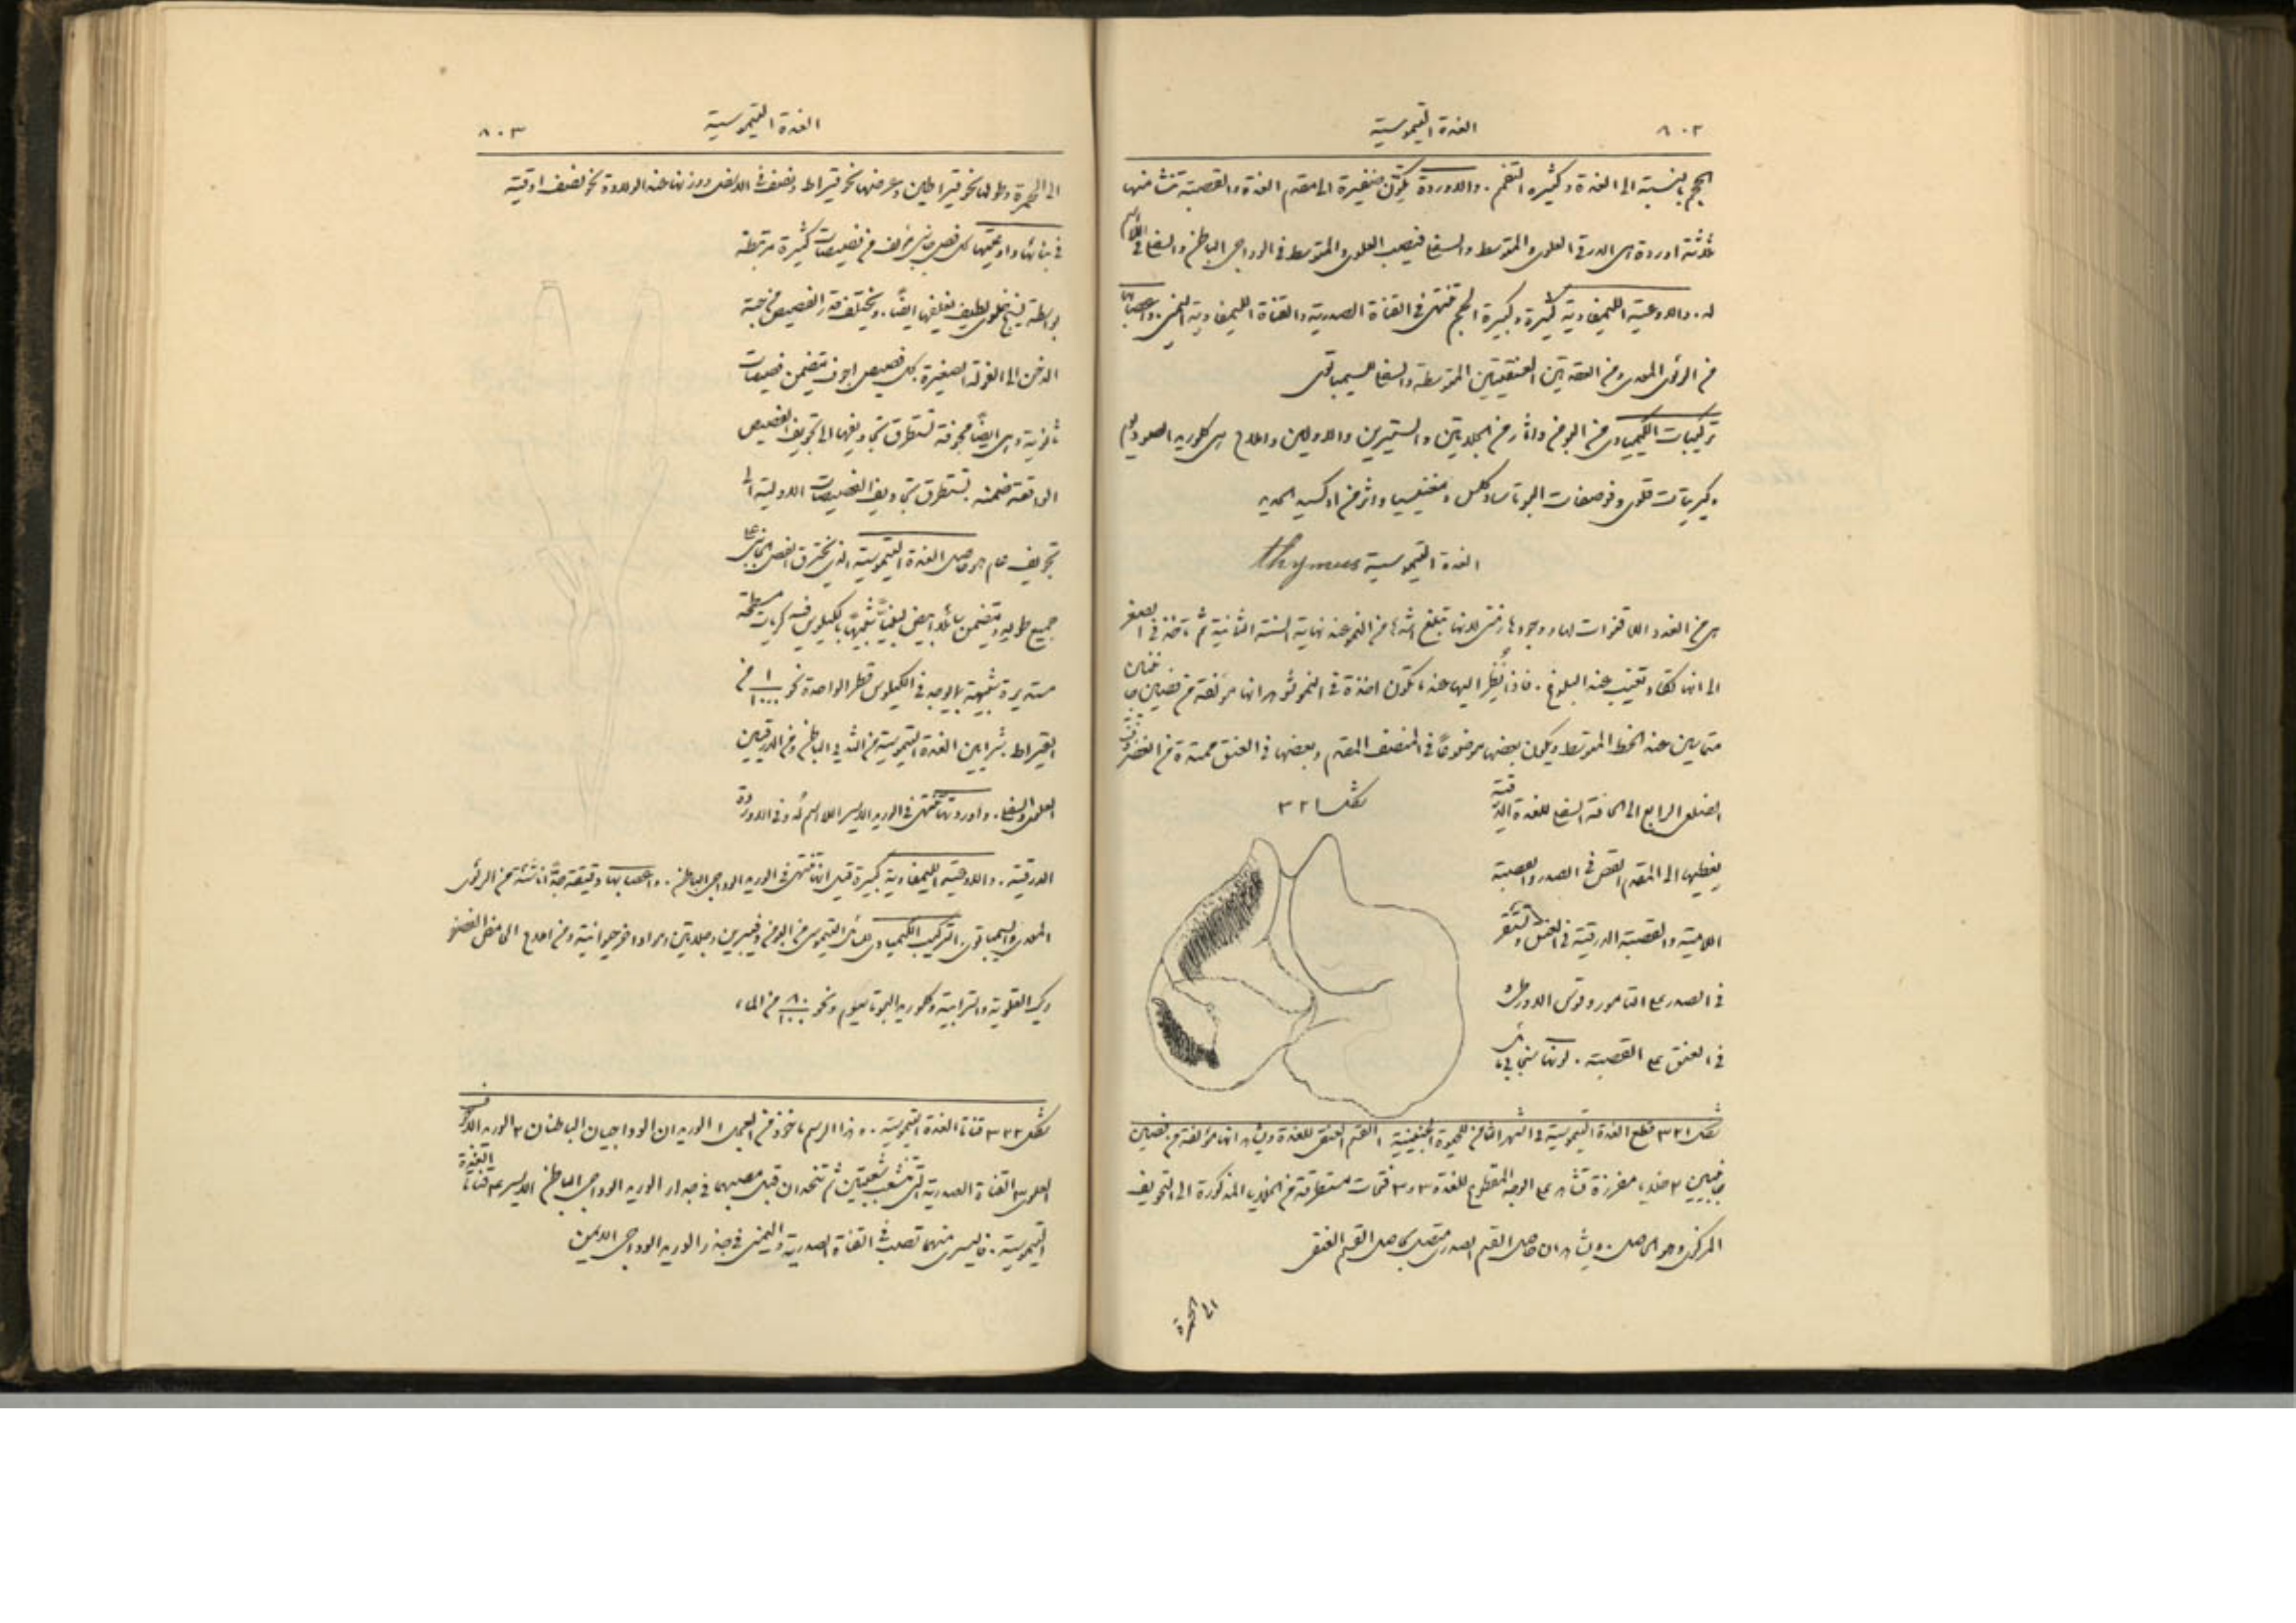 ٨٠٢ الغدة التيموسية
الحجم بالنسبة الى الغدة وكثيرة التفمم. والاوردة يتكون ضفيرة الى مقدم الغدة والقصبة تنشا منها
ثلثة اوردة هي الدرقي العلوي والمتوسط والسفلي فيصب العلوي والمتوسط في الوداجي الباطن والسفلي في اللااسم
له. والاوعية الليمفاوية كثيرة وكبيرة الحجم تنتهي في القناة الصدرية والقناة الليمفاوية اليمنى. واعصابها
من الرئوي المعدي ومن العقدتين العنقيتين المتوسطة والسفلى للسيمباتوي
تركيبات الكيمياوي من البومن واثار من الجلاتين والستيرين والاولين واملاح هي كلوريد الصوديوم
وكبريتات قلوي وفوصفات البوتاسا وكلس ومغنيسيا واثر من اوكسيد الحديد
الغدة التيموسية thymus
هي من الغدد اللا قنوات لها ووجودها زمني لانها تبلغ اشدها من النمو عند نهاية السنة الثانية ثم تاخذ في الصغر
الى انها تكاد تغيب عند البلوغ. فاذا نظر اليها عندما تكون اخذة في النمو شوهد انها مؤلفة من فصين جانبيين
متماسين عند الخط المتوسط ويكون بعضها موضوعًا في المنصف المقدم وبعضها في العنق ممتدة من الغضروف
الضلعي الرابع الى الحافة السفلى للغدة الدرقية
شكل ٣٢١
يغطيها الى المقدم القص في الصدر والقصبة
اللامية والقصبة الدرقية في العنق وتستقر
في الصدر على التامور وقوس الاورطى
في العنق على القصبة. لونها سنجابي مائل
شكل ٣٢١ مقطع الغدة التيموسية في الشهر الثامن للحيوة الجنينية ١ القسم العنقي للغدة ويشاهد انها مؤلفة من فصين
جانبيين ٢ خلايا مفرزة تشاهد على الوجه المقطوع للغدة ٣ و٣ فتحات مستطرقة من الخلايا المذكورة الى التجويف
المركزي وهو الحاصل. ويشاهد ان حاصل القسم الصدري متصل بحاصل القسم العنقي
الى الحمرة
الغدة التيموسية ٨٠٣
الى الحمرة وطولها نحو قيراطين وعرضها نحو قيراط ونصف في الاسفل ووزنها عند الولادة نحو نصف اوقية
في بنائها واوعيتها كل فص جانبي مؤلف من فصيصات كثيرة مرتبطة
بواسطة نسيج خلوي لطيف يغلفها ايضًا. ويختلف قدر الفصيص من حبة
الدخن الى الفولة الصغيرة. كل فصيص اجوف يتضمن فصيصات
ثانوية وهي ايضًا مجوفة تستطرق تجاويفها الى تجويف الفصيص
الواقعة ضمنه. تستطرق تجاويف الفصيصات الاولية الى
تجويف عام هو حاصل الغدة التيموسية الذي يخترق الفص الجانبي على
جميع طوله ويتضمن سائلا ابيض لبنيًا شبيهًا بالكيلوس فيه كريات مسطحة
مستديرة شبيهة بما يوجد في الكيلوس قطر الواحدة نحو ١/١٠٠٠ من
القيراط. شرايين الغدة التيموسية من الثديي الباطن ومن الدرقيين
العلوي والسفلي. واوردتها تنتهي في الوريد الايسر اللااسم له وفي الاوردة
الدرقية. والاوعية الليمفاوية كبيرة قيل انها تنتهي في الوريد الوداجي الباطن. واعصابها دقيقة جدًا ناشئة من الرئوي
المعدي والسيمباتوي. التركيب الكيمياوي للسائل التيموسي من البومن وفيبرين وجلاتين ومواد اخر حيوانية ومن املاح الحامض الفصفو
ريك القلوية والترابية وكلوريد البوتاسيوم ونحو ٨٠/١٠٠ من الماء
شكل ٣٢٢ قناتا الغدة التيموسية. وهذا الرسم ماخوذ من العجل ١ الوريدان الوداجيان الباطنان ٢ الوريد الاجوف
العلوي ٣ القناة الصدرية التي تنشعب شعبتين ثم تتحدان قبل مصبهما في جدار الوريد الوداجي الباطن الايسر ٤ قناتا الغدة
التيموسية. فاليسرى منهما تصب في القناة الصدرية واليمنى في جذر الوريد الوداجي الايمن